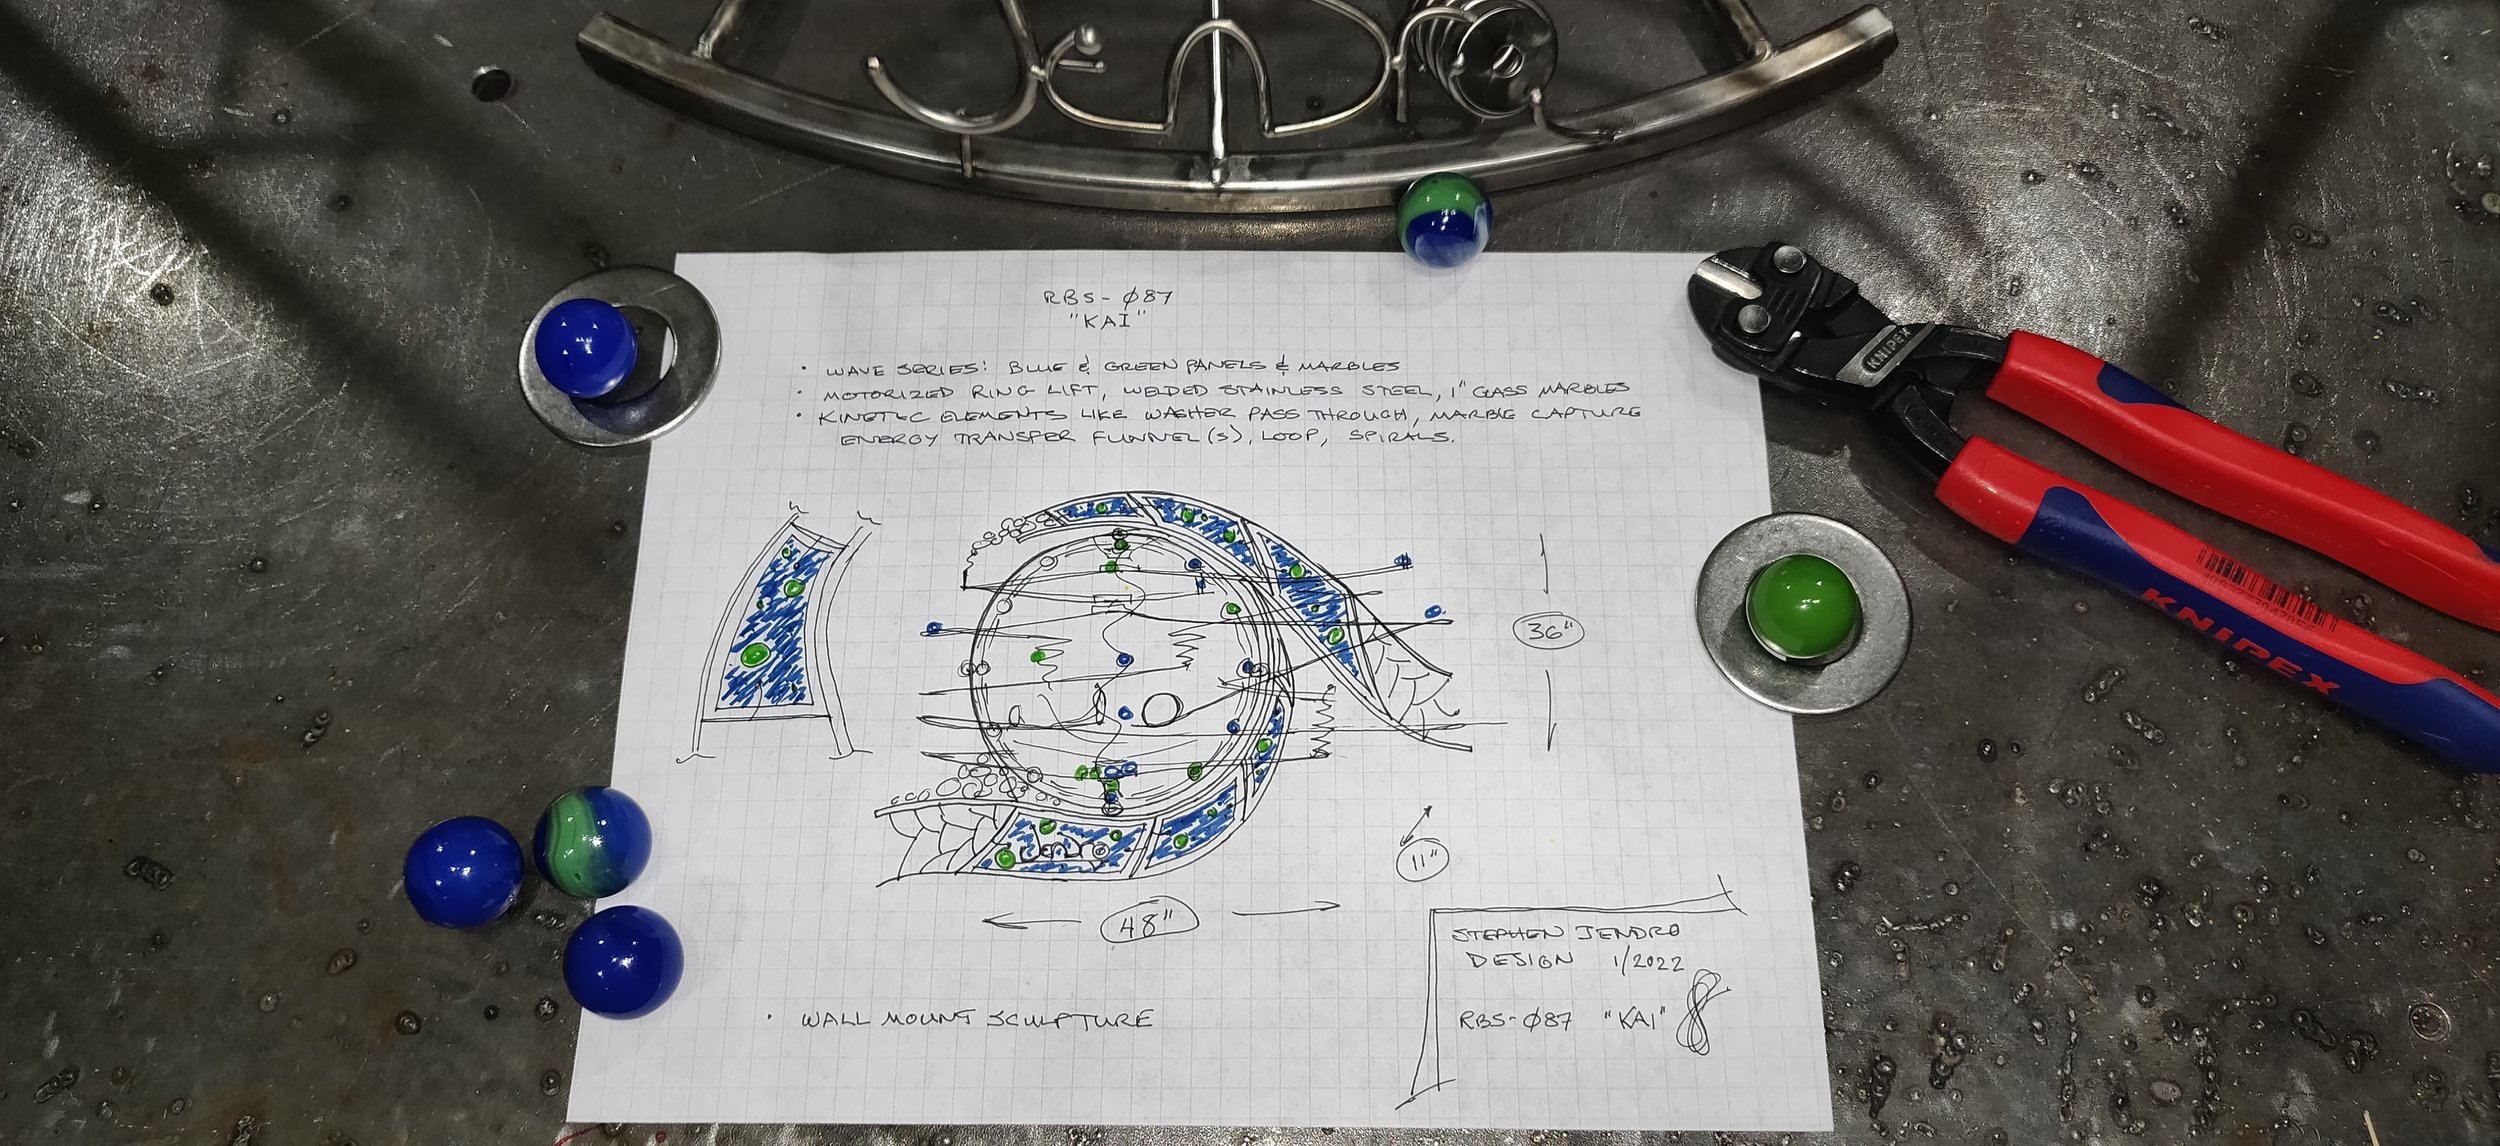 Jendro
RBS-Ø87
"KAI"
• WAVE SERIES: BLUE & GREEN PANELS & MARBLES
• MOTORIZED RING LIFT, WELDED STAINLESS STEEL, 1" GLASS MARBLES
• KINETIC ELEMENTS LIKE WASHER PASS THROUGH, MARBLE CAPTURE
ENERGY TRANSFER FUNNEL(S), LOOP, SPIRALS.
KNIPEX
KNIPEX
36"
11"
48"
Jendro
STEPHEN JENDRO
DESIGN 1/2022
RBS-Ø87 "KAI"
• WALL MOUNT SCULPTURE